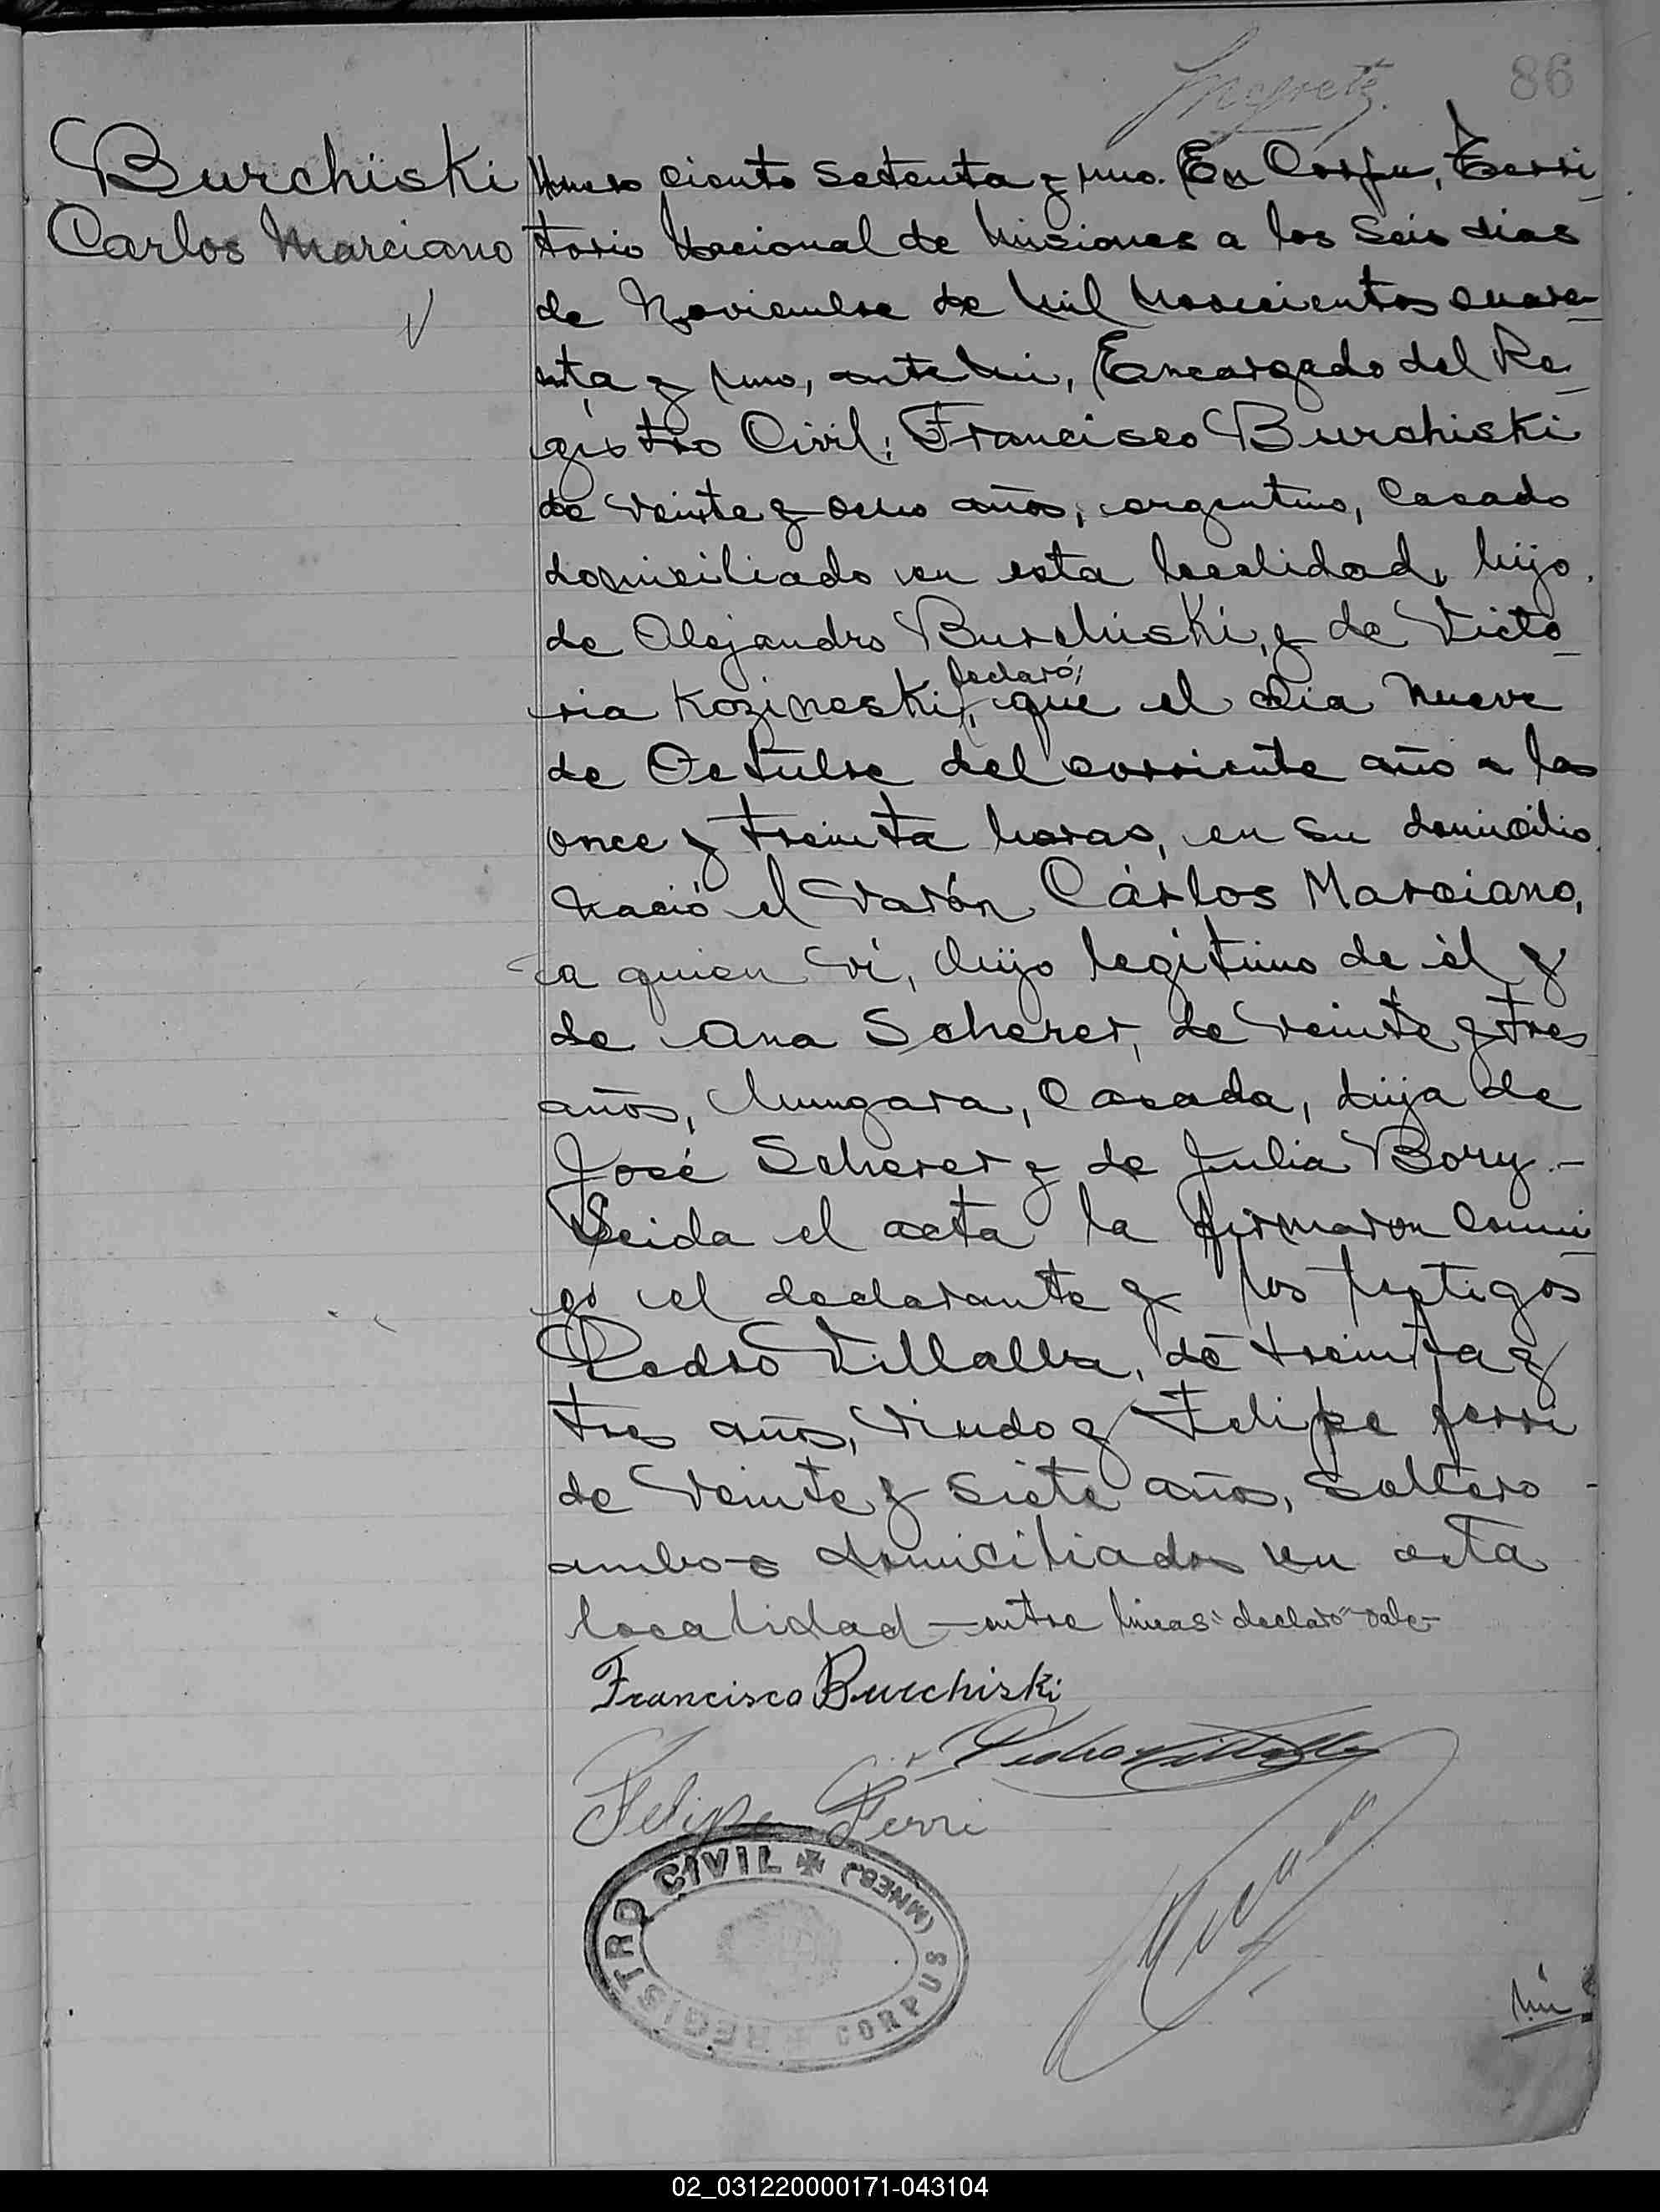 86
Burchiski
Carlos Marciano
Número ciento setenta y uno. En Corpus, Terri-
torio Nacional de Misiones a los Seis dias
de Noviembre de Mil Novecientos cuare-
nta y uno, ante Mi, Encargado del Re-
gistro Civil; Francisco Burchiski
de veinte y ocho años, argentino, Casado
domiciliado en esta localidad, hijo
de Alejandro Burchiski, y de Victo-
declaró;
ria Kozineski, que el dia Nueve
de Octubre del corriente año a las
once y treinta horas, en su domicilio
Nació el varón Cárlos Marciano,
a quien vi, hijo legítimo de él y
de Ana Scherer, de veinte y tres
años, hungara, Casada, hija de
José Scherer y de Julia Bory.-
Leida el acta la firmaron Conmi-
go el declarante y los testigos
Pedro Villalba, de treinta y
tres años, Viudo y Felipe ferri
de Veinte y siete años, soltero -
ambos domiciliados en esta
localidad - entre lineas: declaró" vale-
Francisco Burchiski
Pedro Villalba
Felipe Ferri
REGISTRO CIVIL (MNES.) CORPUS
02_031220000171-043104